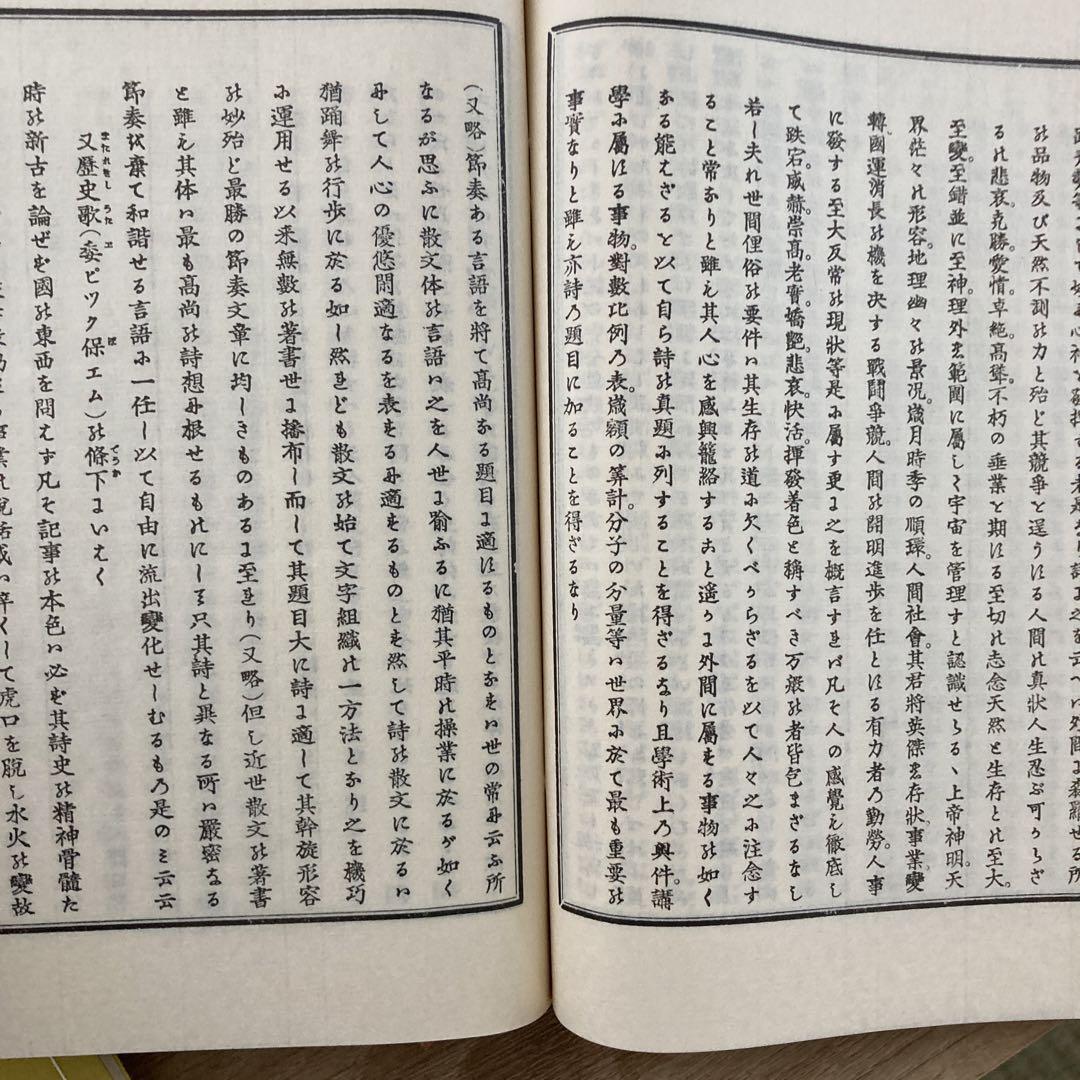 の品物及び天然不測の力と殆ど其競爭に逞うはる人間の真狀人生忍ぶ可からざ
るの悲哀。克勝。愛惜。卓絶。高聳。不朽の垂業と期はる至切の志念天然と生存との至大。
至變。至錯並に至神理外まで範圍に屬しく宇宙を管理すと認識せらる、上帝神明。天
界茫々の形容。地理幽々の景况。歲月時季の順環。人間社會。其君將英傑ま存狀事業變
轉。國運消長の機を決する戰鬪爭競。人間の開明進步を任とはる有力者乃勤勞。人事
に發する至大反常の現狀等是に屬す更に之を概言すれバ凡そ人の感覺を徹底し
て跌宕。威赫。崇高。老實。嬌艶。悲哀。快活。揮發着色と稱すべき万般の者皆包まざるなし
若し夫れ世間俚俗の要件い其生存の道に欠くべからざるを以て人々之に注念す
ること常なりと雖も其人心を感興籠絡するあと遙かに外間に屬する事物の如く
なる能えざると以て自ら詩の真題に列することを得ざるなり且學術上乃與件。講
學に屬はる事物。對數比例乃表。幾顆の筭計分子の分量等い世界に於て最も重要の
事實なりと雖も亦詩乃題目に加ることを得ざるなり
(又略)節奏ある言語を將て高尚なる題目に適はるものとなをい世の常に云ふ所
なるが思ふに散文体の言語い之を人世に喻ふるに猶其平時の操業に於るが如く
にして人心の優悠閒適なるを表するに適するものとを然して詩の散文に於るい
猶踊舞の行步に於る如し然れども散文の始て文字組織の一方法となり之を機巧
に運用せる以来無數の著書世に播布し而して其題目大に詩に適して其幹旋形容
の妙殆ど最勝の節奏文章に均しきものあるに至れり(又略)但し近世散文の著書
と雖も其体い最も高尚の詩想に根せるものにしヿ只其詩と異なる所い嚴密なる
節奏を棄て和諧せる言語に一任し以て自由に流出變化せしむるもの是のミ云云
又歷史歌(委ピツク保エム)の條下にいえく
時の新古を論ぜず國の東西を問えず凡そ記事の本色い必ず其詩史の精神骨髓た